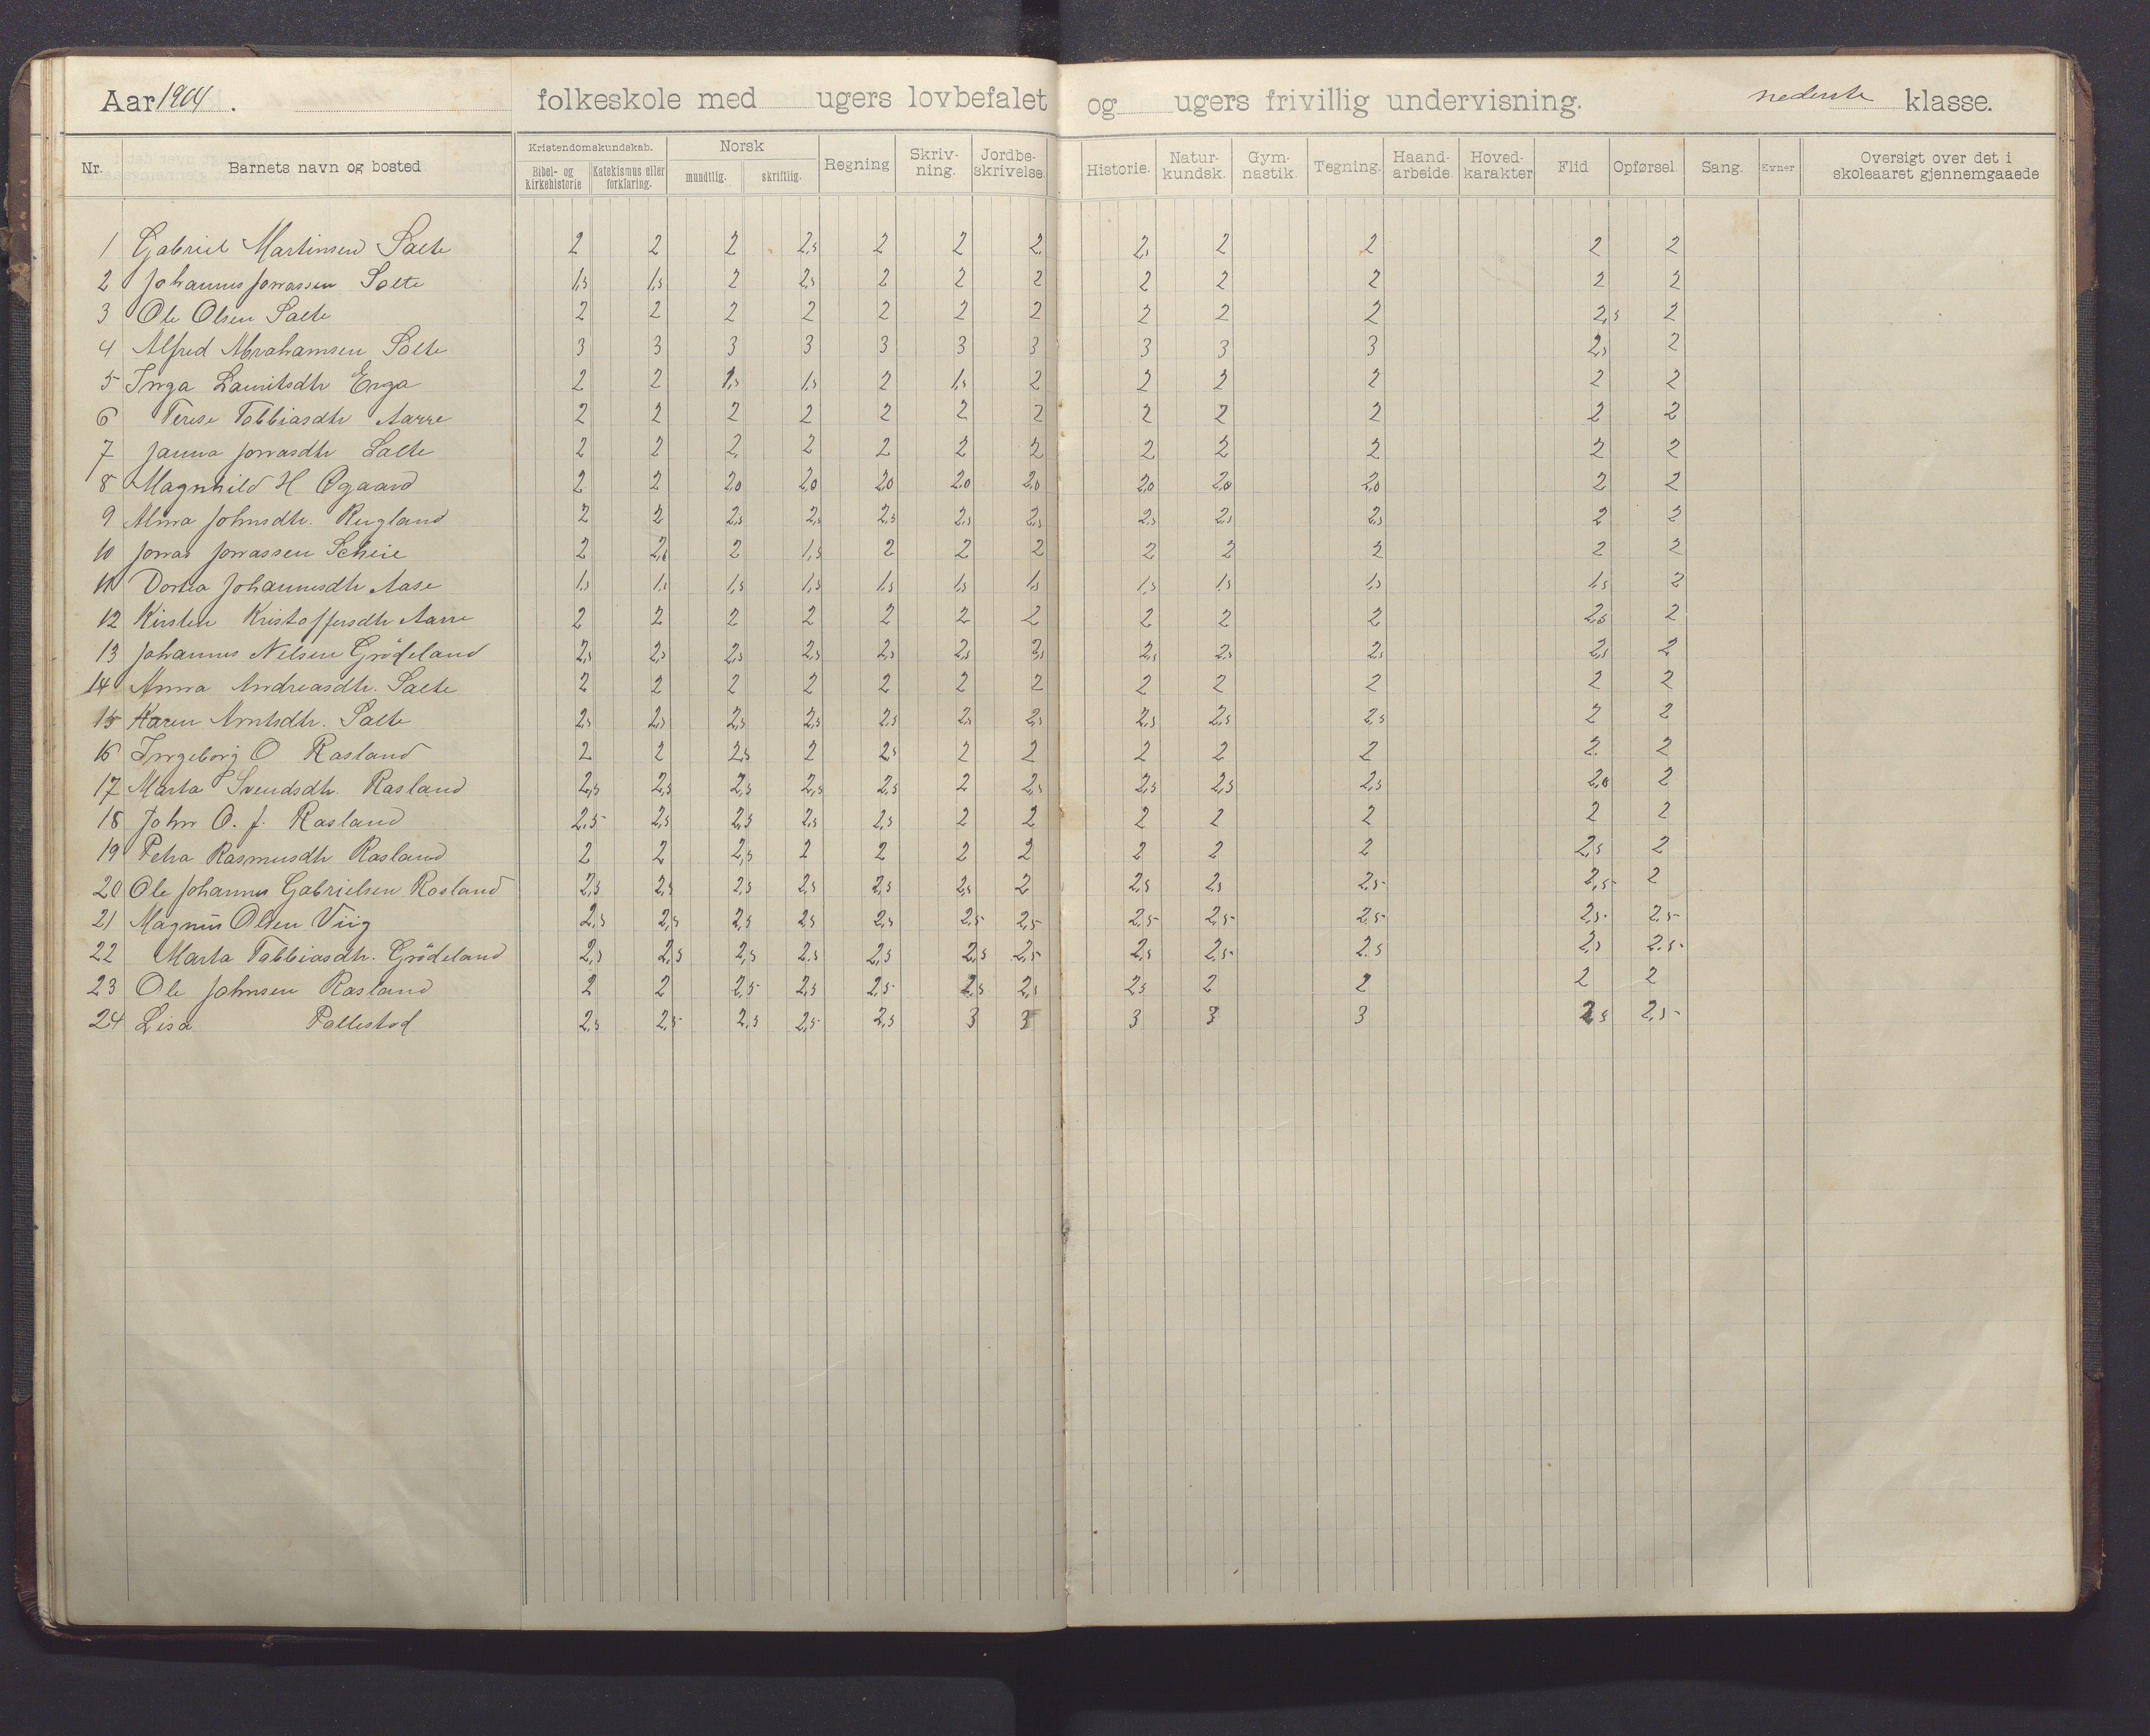 Aar 1904. folkeskole med ugers lovbefalet og ugers frivillig undervisning. nederste klasse.
Nr. Barnets navn og bosted Kristendomskundskab. Bibel- og kirkehistorie Katekismus eller forklaring. Norsk mundtlig. skriftlig. Regning Skriv-ning. Jordbe-skrivelse. Historie. Natur-kundsk. Gym-nastik. Tegning. Haand-arbeide. Hoved-karakter Flid Opførsel. Sang. Evner Oversigt over det i skoleaaret gjennemgaaede
1 Gabriel Martinsen Salte 2 2 2 2,5 2 2 2 2, 2 2 2 2
2 Johannes Jonassen Salte 1,5 1,5 2 2,5 2 2 2 2 2 2 2 2
3 Ole Olsen Salte 2 2 2 2 2 2 2 2 2 2 2,5 2
4 Alfred Abrahamsen Salte 3 3 3 3 3 3 3 3 3 3 2,5 2
5 Inga Lauritsdtr Erga 2 2 1,5 1,5 2 1,5 2 2 2 2 2 2
6 Terese Tobbiasdtr Aarre 2 2 2 2 2 2 2 2 2 2 2 2
7 Janna Jonasdtr Salte 2 2 2 2 2 2 2 2 2 2 2 2
8 Magnhild H Øgaard 2 2 2,0 2,0 2,0 2,0 2,0 2,0 2,0 2,0 2 2
9 Alma Johnsdtr. Rugland 2 2 2,5 2,5 2,5 2,5 2,5 2,5 2,5 2,5 2 2
10 Jonas Jonassen Scheie 2 2,0 2 1,5 2 2 2 2 2 2 2 2
11 Dortea Johannesdtr Aase 1,5 1,5 1,5 1,5 1,5 1,5 1,5 1,5 1,5 1,5 1,5 2
12 Kirsten Kristoffersdtr Aarre 2 2 2 2 2 2 2 2 2 2 2,5 2
13 Johannes Nelsen Grödeland 2,5 2,5 2,5 2,5 2,5 2,5 2,5 2,5 2,5 2,5 2,5 2
14 Anna Andreasdtr. Salte 2 2 2 2 2 2 2 2 2 2 2 2
15 Karen Arntsdtr. Salte 2,5 2,5 2,5 2,5 2,5 2,5 2,5 2,5 2,5 2,5 2 2
16 Ingeborg O Rasland 2 2 2,5 2 2,5 2 2 2 2 2 2 2
17 Marta Svendsdtr. Rasland 2,5 2,5 2,5 2,5 2,5 2 2,5 2,5 2,5 2,5 2,0 2
18 John O. J. Rasland 2,5 2,5 2,5 2,5 2,5 2 2 2 2 2 2 2
19 Petra Rasmusdtr Rasland 2 2 2,5 2 2 2 2 2 2 2 2,5 2
20 Ole Johannes Gabrielsen Rasland 2,5 2,5 2,5 2,5 2,5 2,5 2 2,5 2,5 2,5 2,5 2
21 Magnus Olsen Viig 2,5 2,5 2,5 2,5 2,5 2,5 2,5 2,5 2,5 2,5 2,5 2,5
22 Marta Tobbiasdtr. Grödeland 2,5 2,5 2,5 2,5 2,5 2,5 2,5 2,5 2,5 2.5 2,5 2.5
23 Ole Johnsen Rasland 2 2 2,5 2,5 2,5 2,5 2,5 2,5 2 2 2 2
24 Lisa Pallestad 2,5 2,5 2,5 2,5 2,5 3 3 3 3 3 2,5 2,5